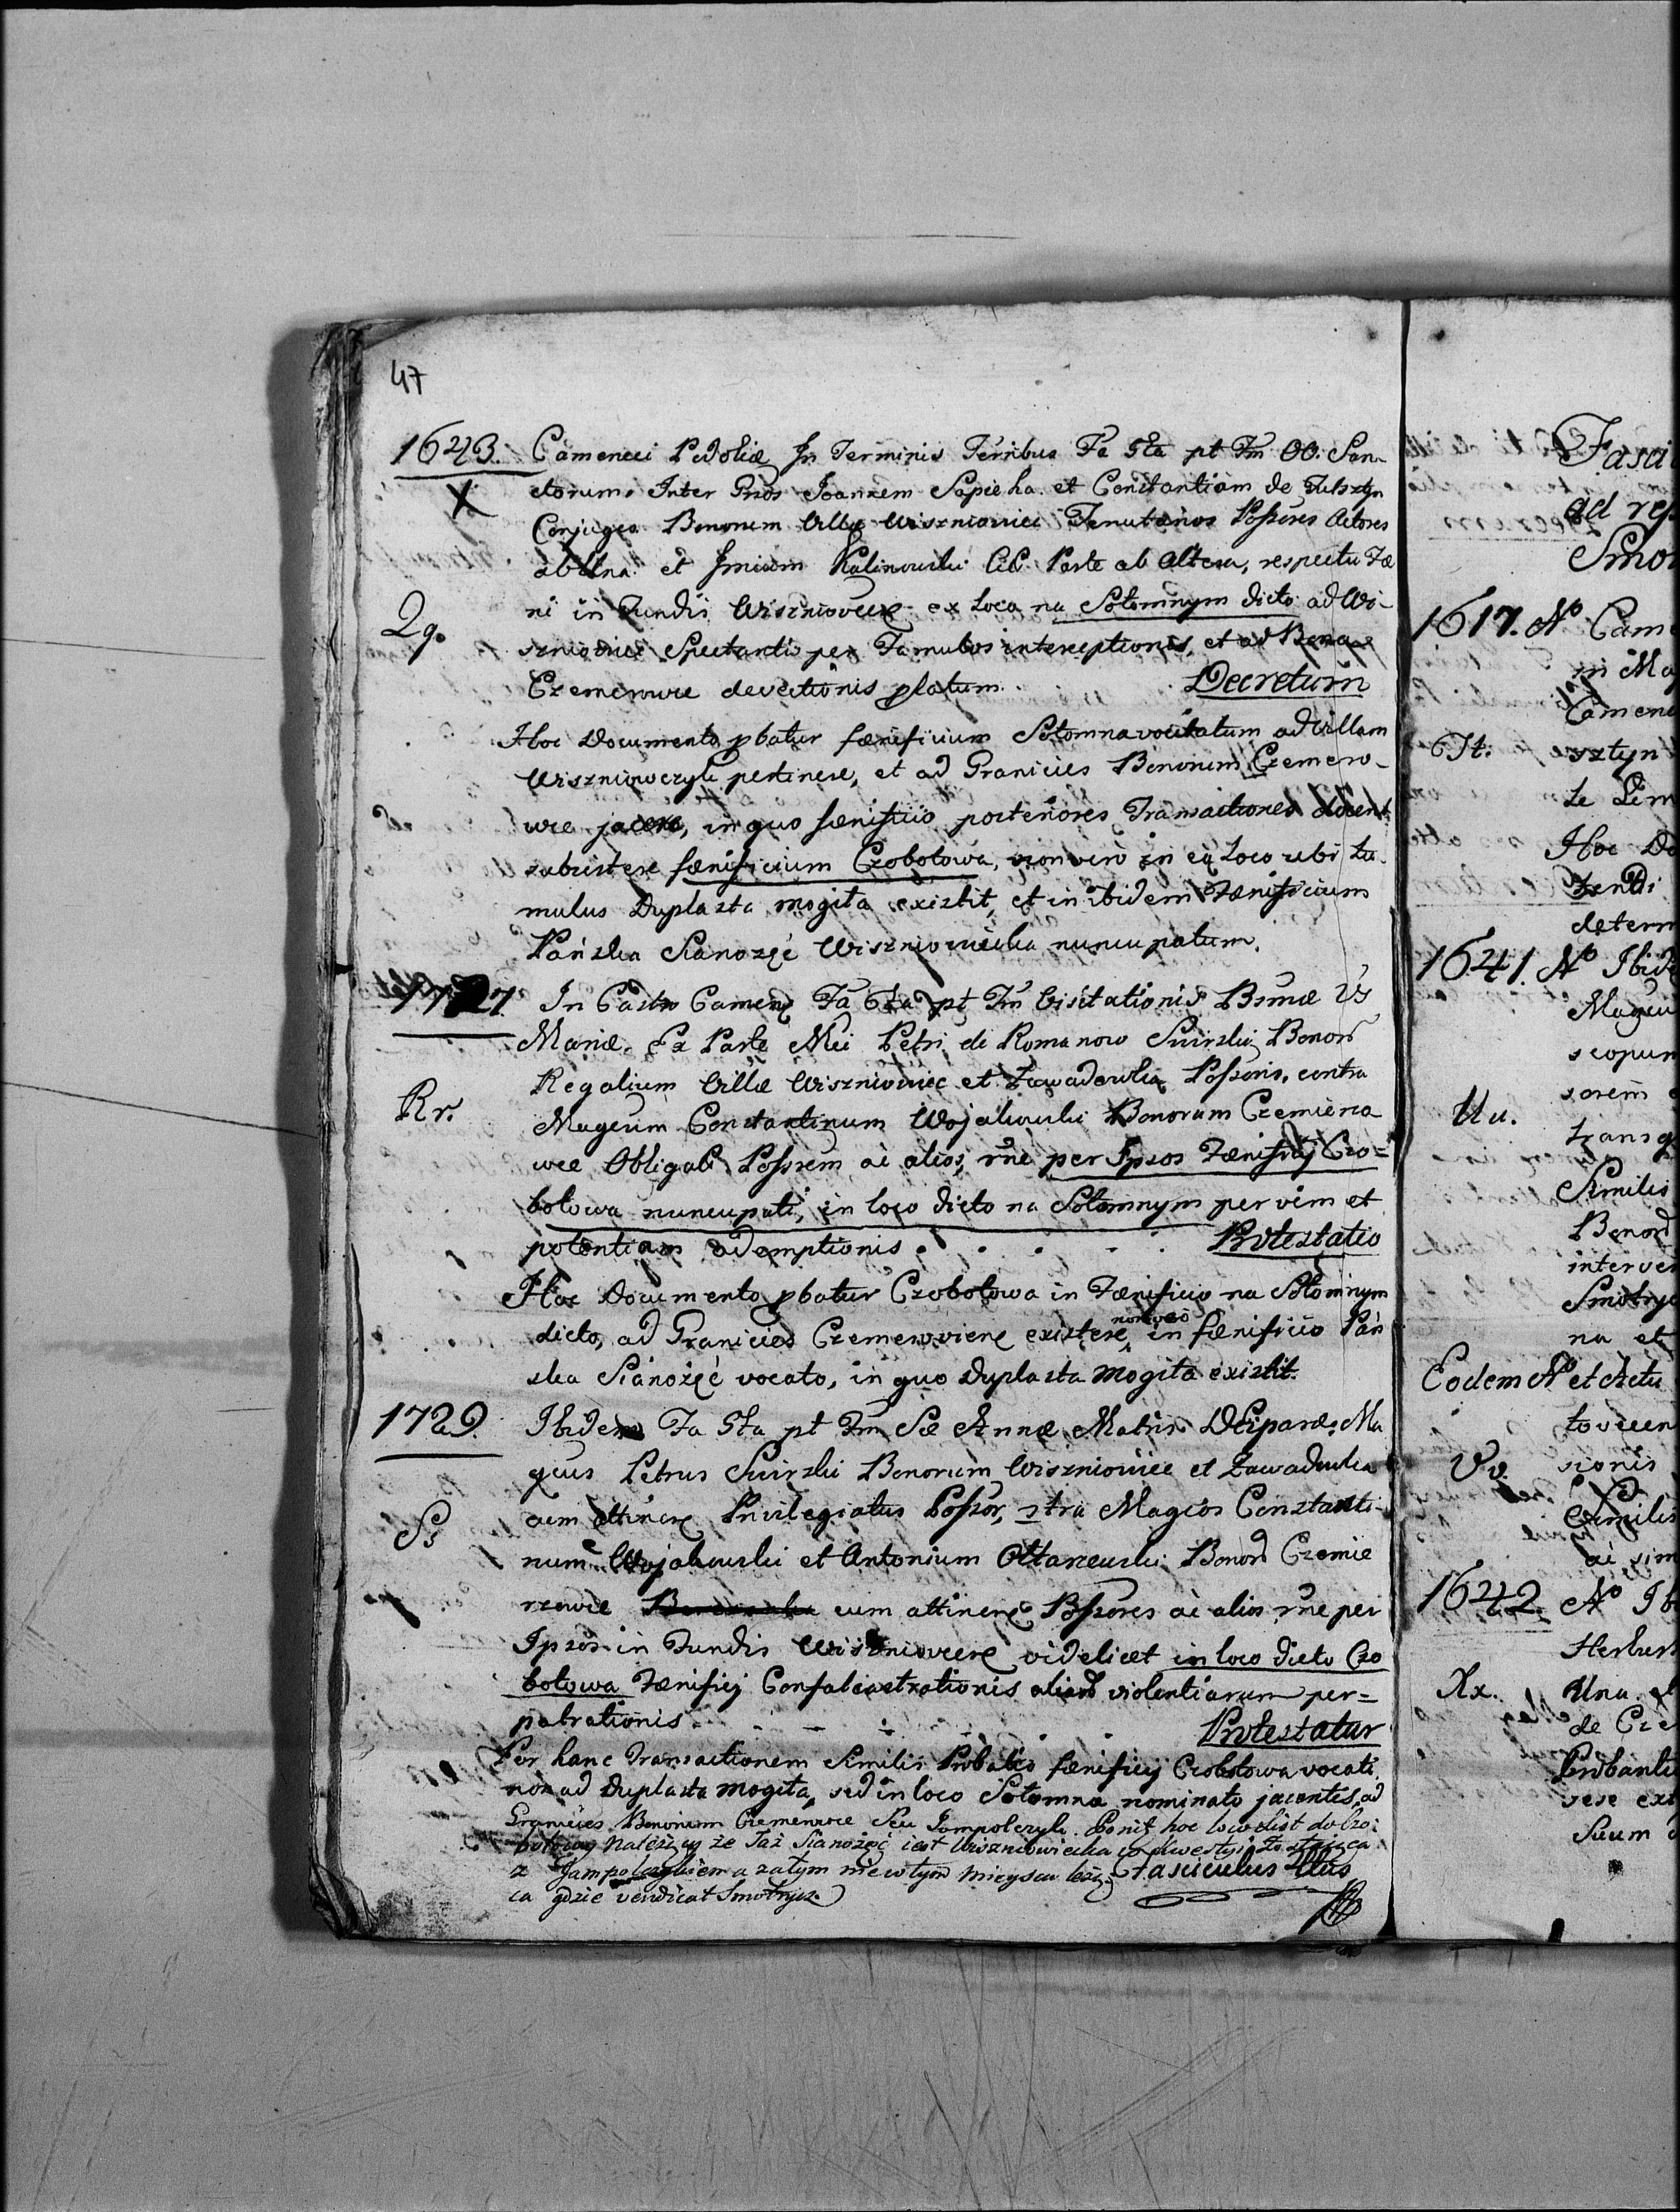 47
1643. Cameneci Podoliæ In Terminis Terribus Fa 5ta pt Fm OO. San-
X
ctorum. Inter Gnos Joannem Sapieha et Constantiam de Tulsztyn
Conjuges Bonorum Villæ Wiszniowiec Tenutarios Possores Actores
ab Una et Kalinowski Parte ab Altera, respectu Fæ
Qq.
ni in Fundis Wiszniovcen ex Loco na Sołomnym dicto ad Wi-
szniowiec Spectantis per Famulos interceptionis, et ad Bona
Czemerowce devectionis platum. Decretum
Hoc Documento pbatur fænificium Sołomna vocitatum ad Villam
Wiszniowczyk pertinere, et ad Granicies Bonorum Czemero-
wce jacere, in quo fænificio posteriores Transactiones docent
subsistere fænificium Czobotowa, non vero in eo Loco ubi tu-
mulus Duplasta mogiła existit, et in ibidem Fænificium
Pańska Sianożęć Wiszniowiecka nuncupatum.
1727. In Castro Camen Fa 6ta pt Fm Visitationis Bsmæ VS
Mariæ. Ex Parte Mci Petri de Romanow Swirski Bonor
Regalium Villæ Wiszniowiec et Zawadowka Possoris, contra
Rr.
Magcum Constantinum Wojakowski Bonorum Czemiero
wce Obligat Possrem ac alios, rne per Ipsos Fænificij Czo=
botowa nuncupati, in loco dicto na Sołomnym per vim et
potentiam ademptionis . . . . . Protestatio
Hoc Documento pbatur Czobotowa in Fænificio na Sołomnym
dicto, ad Granicies Czemeroviene existere, non vero in fænificio Pań
ska Sianożęć vocato, in quo Duplasta Mogiła existit.
1729. Ibidem Fa 5ta pt Fm Sæ Annæ Matris Deiparæ. Ma
gcus Petrus Swirski Bonorum Wiszniowiec et Zawadowka
cum attinen Privilegiatus Possor, ztra Magcos Constanti-
Ss
num Wojakowski et Antonium Ottarzewski Bonor Czemie
rowce cum attinen Possores ac alios rne per
Ipsos in Fundis Wiszniovcen videlicet in loco dicto Czo
botowa Fænificij Confalcastrationis aliard violentiarum per=
patrationis Protestatur
Per hanc Transactionem Similis Probatio fænificij Czobotowa vocati
non ad Duplasta Mogiła, sed in loco Sołomna nominato jacentis, ad
Granicies Bonorum Czemerowce Seu Jampolczyk. Ponit hoc loco list do Czo:
botowey należący że Taż Sianożęć iest Wiszniowiecka w kwestyi Zostaiąca
z Jampolczykiem a zatym nie w tym mieyscu leżą- Fasciculus
ca gdzie vendicat Smotrycz
Fasci
ad rep
Smo
1617. Aº Came
in Mag
Camene
Tt. sztyn
Hoc Do
determ
1641. Aº Ibid
Magcu
scopum
sorem
Uu. transg
Similis
Bonor
interven
Smotryc
na et
Eodem Aº et Actu
Vv. sionis
Similis
ac sim
1642. Aº Ib
Herbur
Xx. Una et
de Cze
Probantu
sese ext
Suum